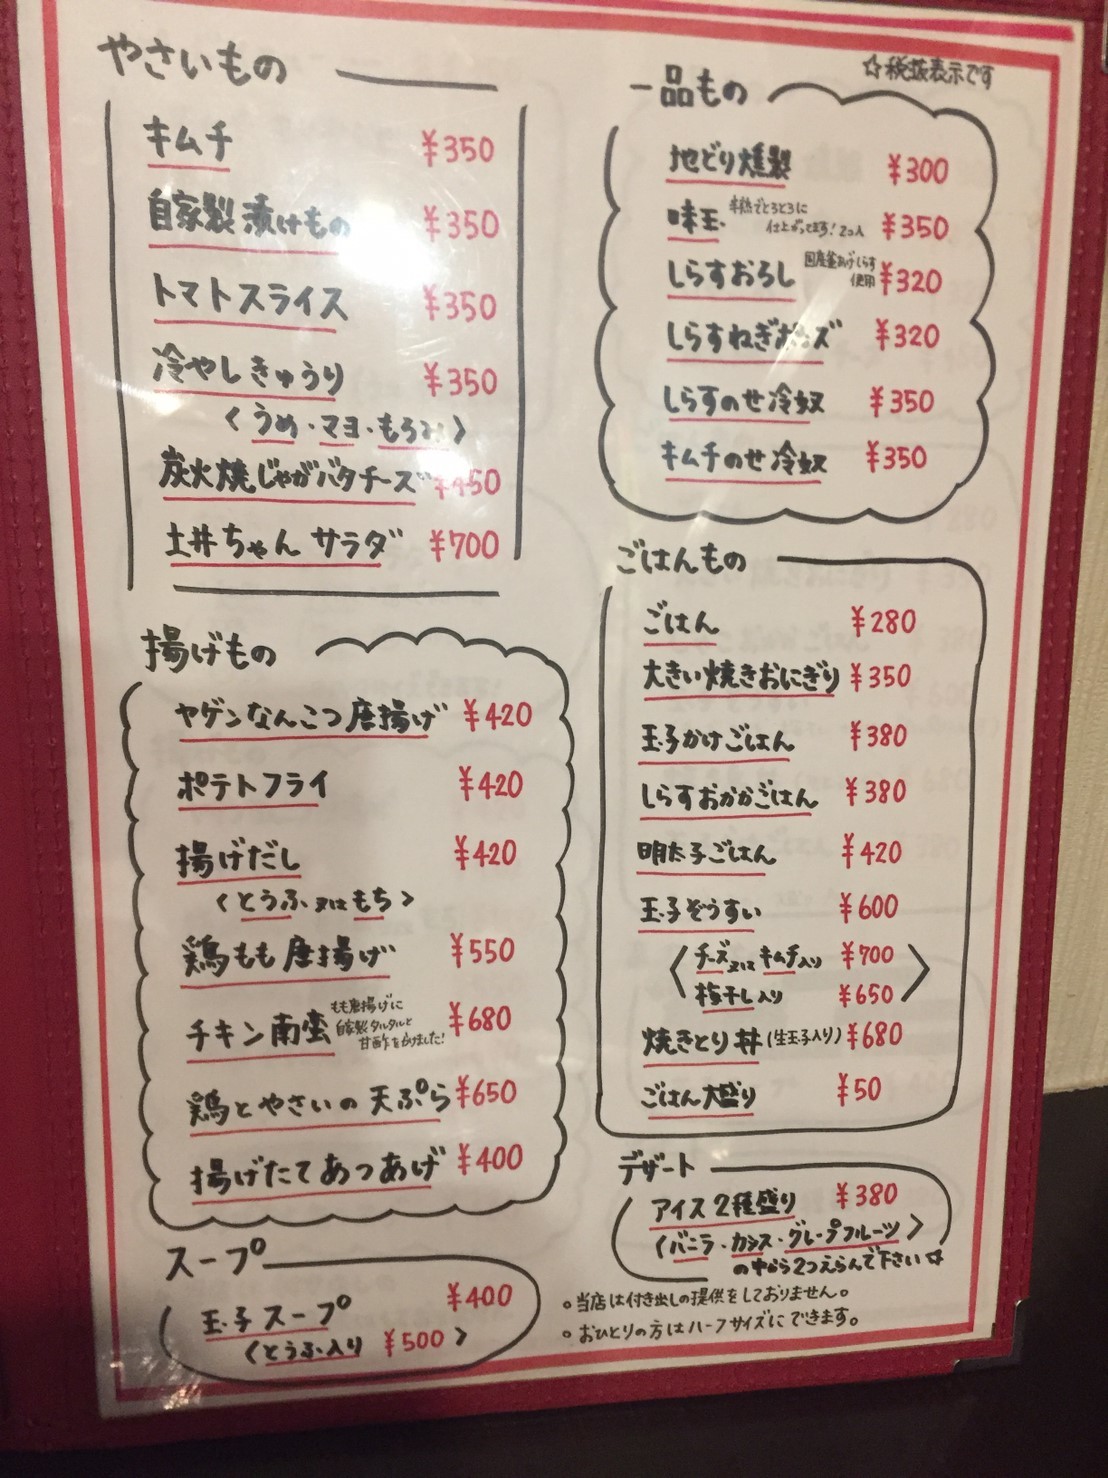 やさいもの
キムチ ¥350
自家製漬けもの ¥350
トマトスライス ¥350
冷やしきゅうり ¥350
〈うめ・マヨ・もろみ〉
炭火焼じゃがバタチーズ ¥450
土井ちゃんサラダ ¥700
揚げもの
ヤゲンなんこつ唐揚げ ¥420
ポテトフライ ¥420
揚げだし ¥420
〈とうふ又はもち〉
鶏もも唐揚げ ¥550
チキン南蛮 もも唐揚げに ¥680
自家製タルタルと
甘酢をかけました!
鶏とやさいの天ぷら ¥650
揚げたてあつあげ ¥400
スープ
玉子スープ ¥400
〈とうふ入り ¥500〉
☆税抜表示です
一品もの
地どり燻製 ¥300
味玉 半熟でとろとろに ¥350
仕上がってます!2コ入
しらすおろし 国産釜あげしらす ¥320
使用
しらすねぎポンズ ¥320
しらすのせ冷奴 ¥350
キムチのせ冷奴 ¥350
ごはんもの
ごはん ¥280
大きい焼きおにぎり ¥350
玉子かけごはん ¥380
しらすおかかごはん ¥380
明太子ごはん ¥420
玉子ぞうすい ¥600
〈チーズ又はキムチ入り ¥700
梅干し入り ¥650〉
焼きとり丼(生玉子入り) ¥680
ごはん大盛り ¥50
デザート
アイス2種盛り ¥380
〈バニラ・カシス・グレープフルーツ〉
の中から2つえらんで下さい☆
。当店は付き出しの提供をしておりません。
。おひとりの方はハーフサイズにできます。